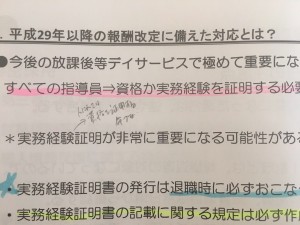 . 平成29年以降の報酬改定に備えた対応とは？
●今後の放課後等デイサービスで極めて重要にな
すべての指導員⇒資格か実務経験を証明する必要
＊実務経験証明が非常に重要になる可能性がある
・実務経験証明書の発行は退職時に必ずおこな
・実務経験証明書の記載に関する規定は必ず作